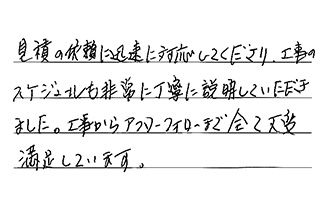 見積の依頼に迅速に対応してくださり、工事の
スケジュールも非常に丁寧に説明していただき
ました。工事からアフターフォローまで全て大変
満足しています。